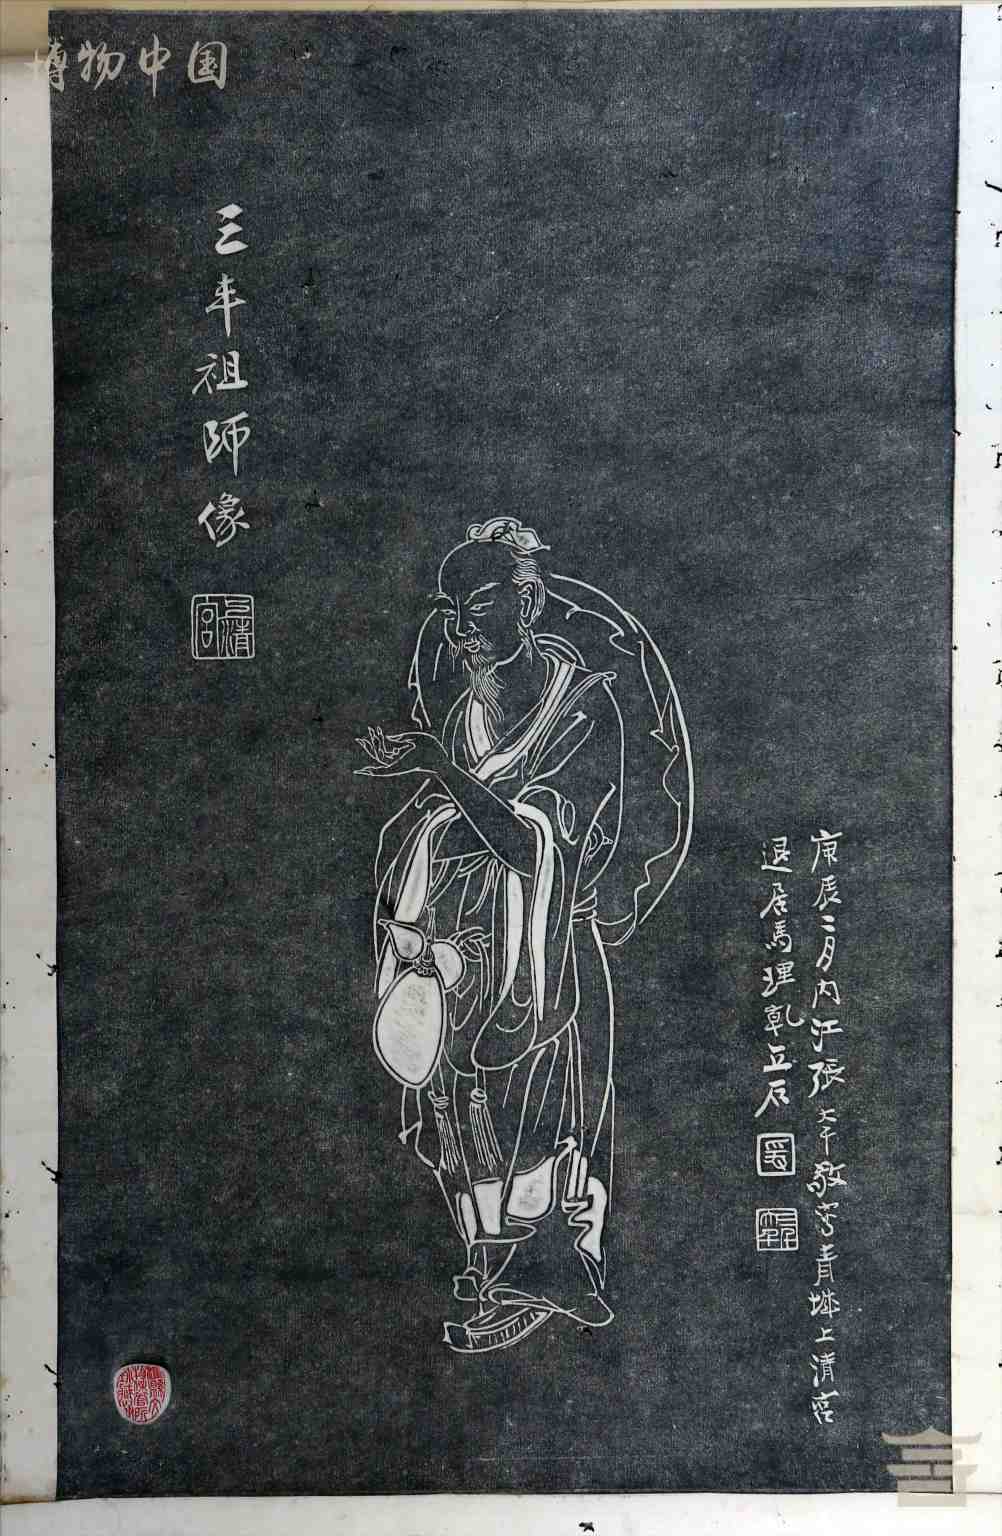 博物中国
三丰祖師像
上清宮
庚辰二月内江張大千敬寫青城上清宮
退居馬理乾立石
爰